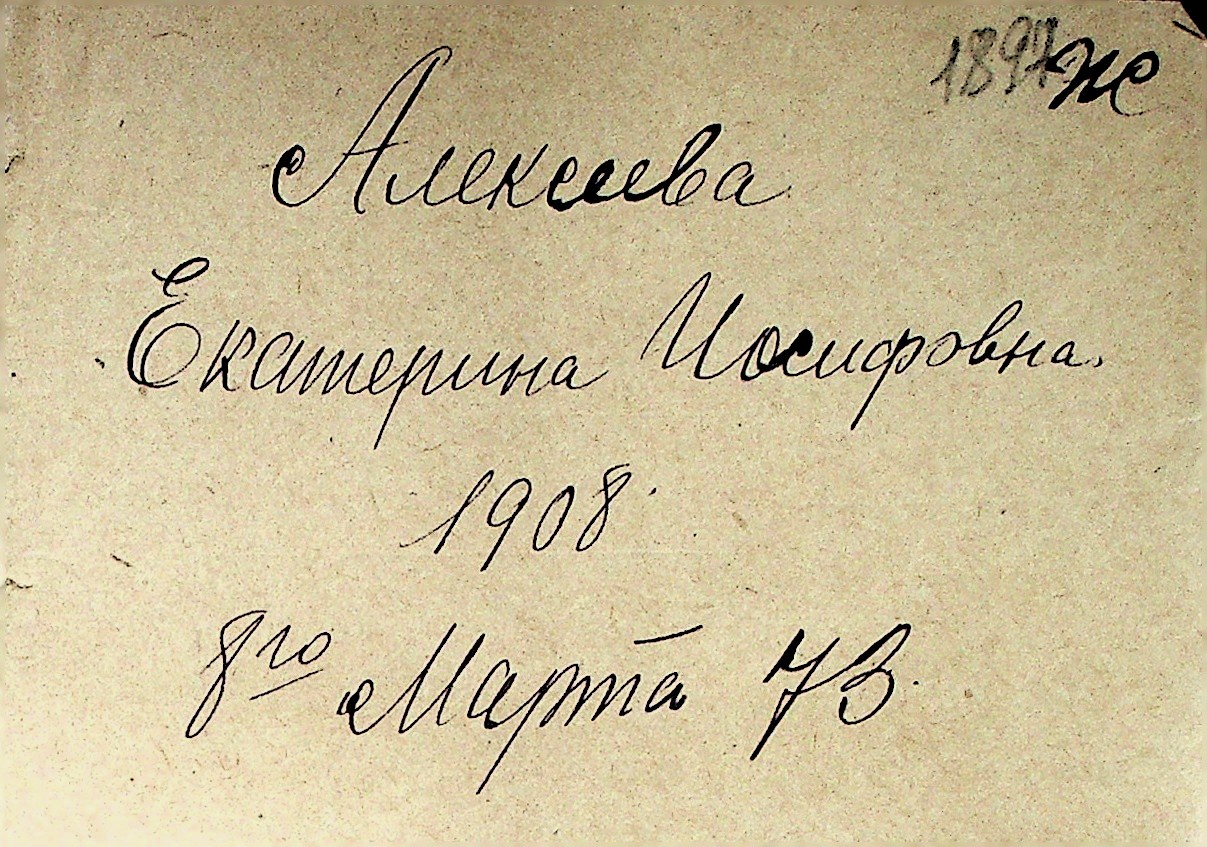 1897 Ж
Алексеева
Екатерина Иосифовна.
1908.
8го Марта 73.